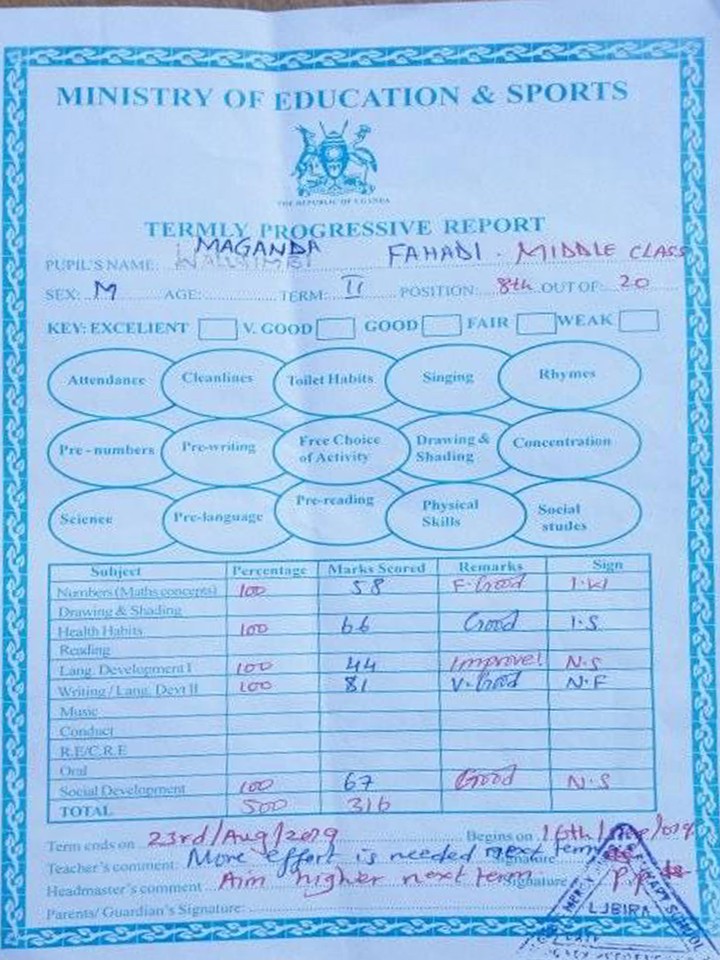 MINISTRY OF EDUCATION & SPORTS
THE REPUBLIC OF UGANDA
TERMLY PROGRESSIVE REPORT
PUPIL'S NAME: MAGANDA FAHADI. MIDDLE CLASS
SEX: M AGE: TERM: II POSITION: 8th OUT OF: 20
KEY: EXCELIENT V. GOOD GOOD FAIR WEAK
Attendance Cleanlines Toilet Habits Singing Rhymes
Pre - numbers Pre-writing Free Choice of Activity Drawing & Shading Concentration
Science Pre-language Pre-reading Physical Skills Social studes
Subject Percentage Marks Scored Remarks Sign
Numbers (Maths concepts) 100 58 F. Good I.KI
Drawing & Shading
Health Habits 100 66 Good I.S
Reading
Lang. Development I 100 44 Improve! N.S
Writing / Lang. Devt II 100 81 V. Good N.F
Music
Conduct
R.E/C.R.E
Oral
Social Development 100 67 Good N.S
TOTAL 500 316
Term ends on 23rd/Aug/2019 Begins on 16th/
Teacher's comment: More effort is needed next term Signature
Headmaster's comment Aim higher next term. Signature P.P
Parents/ Guardian's Signature:
LJBIRA